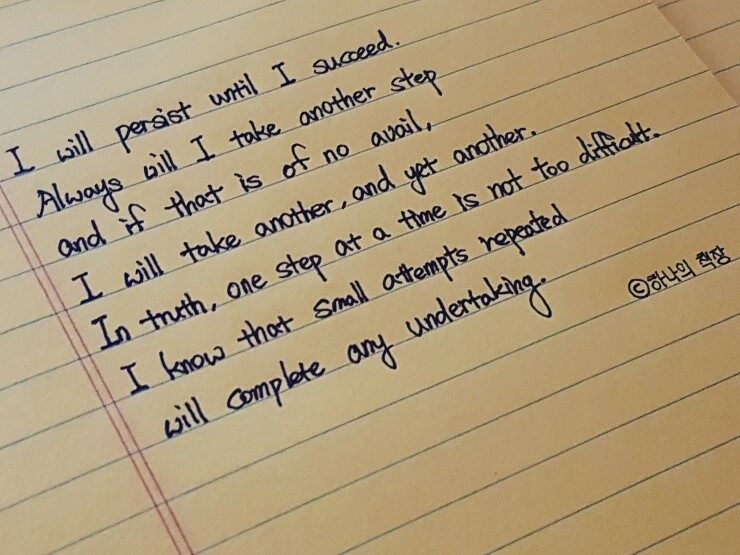 I will persist until I succeed.
Always will I take another step
and if that is of no avail,
I will take another, and yet another.
In truth, one step at a time is not too difficult.
I know that small attempts repeated
will complete any undertaking.
©하나의 책장